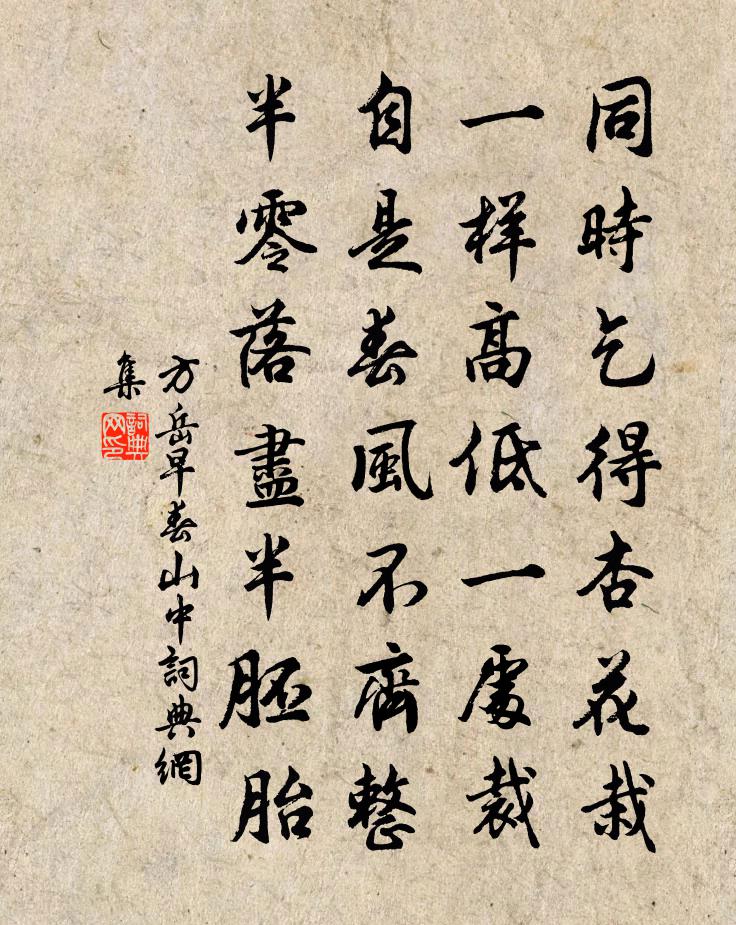 同時乞得杏花栽
一样高低一處裁
自是春風不齊整
半零落盡半胚胎
方岳早春山中詞典網
集
詞典网印